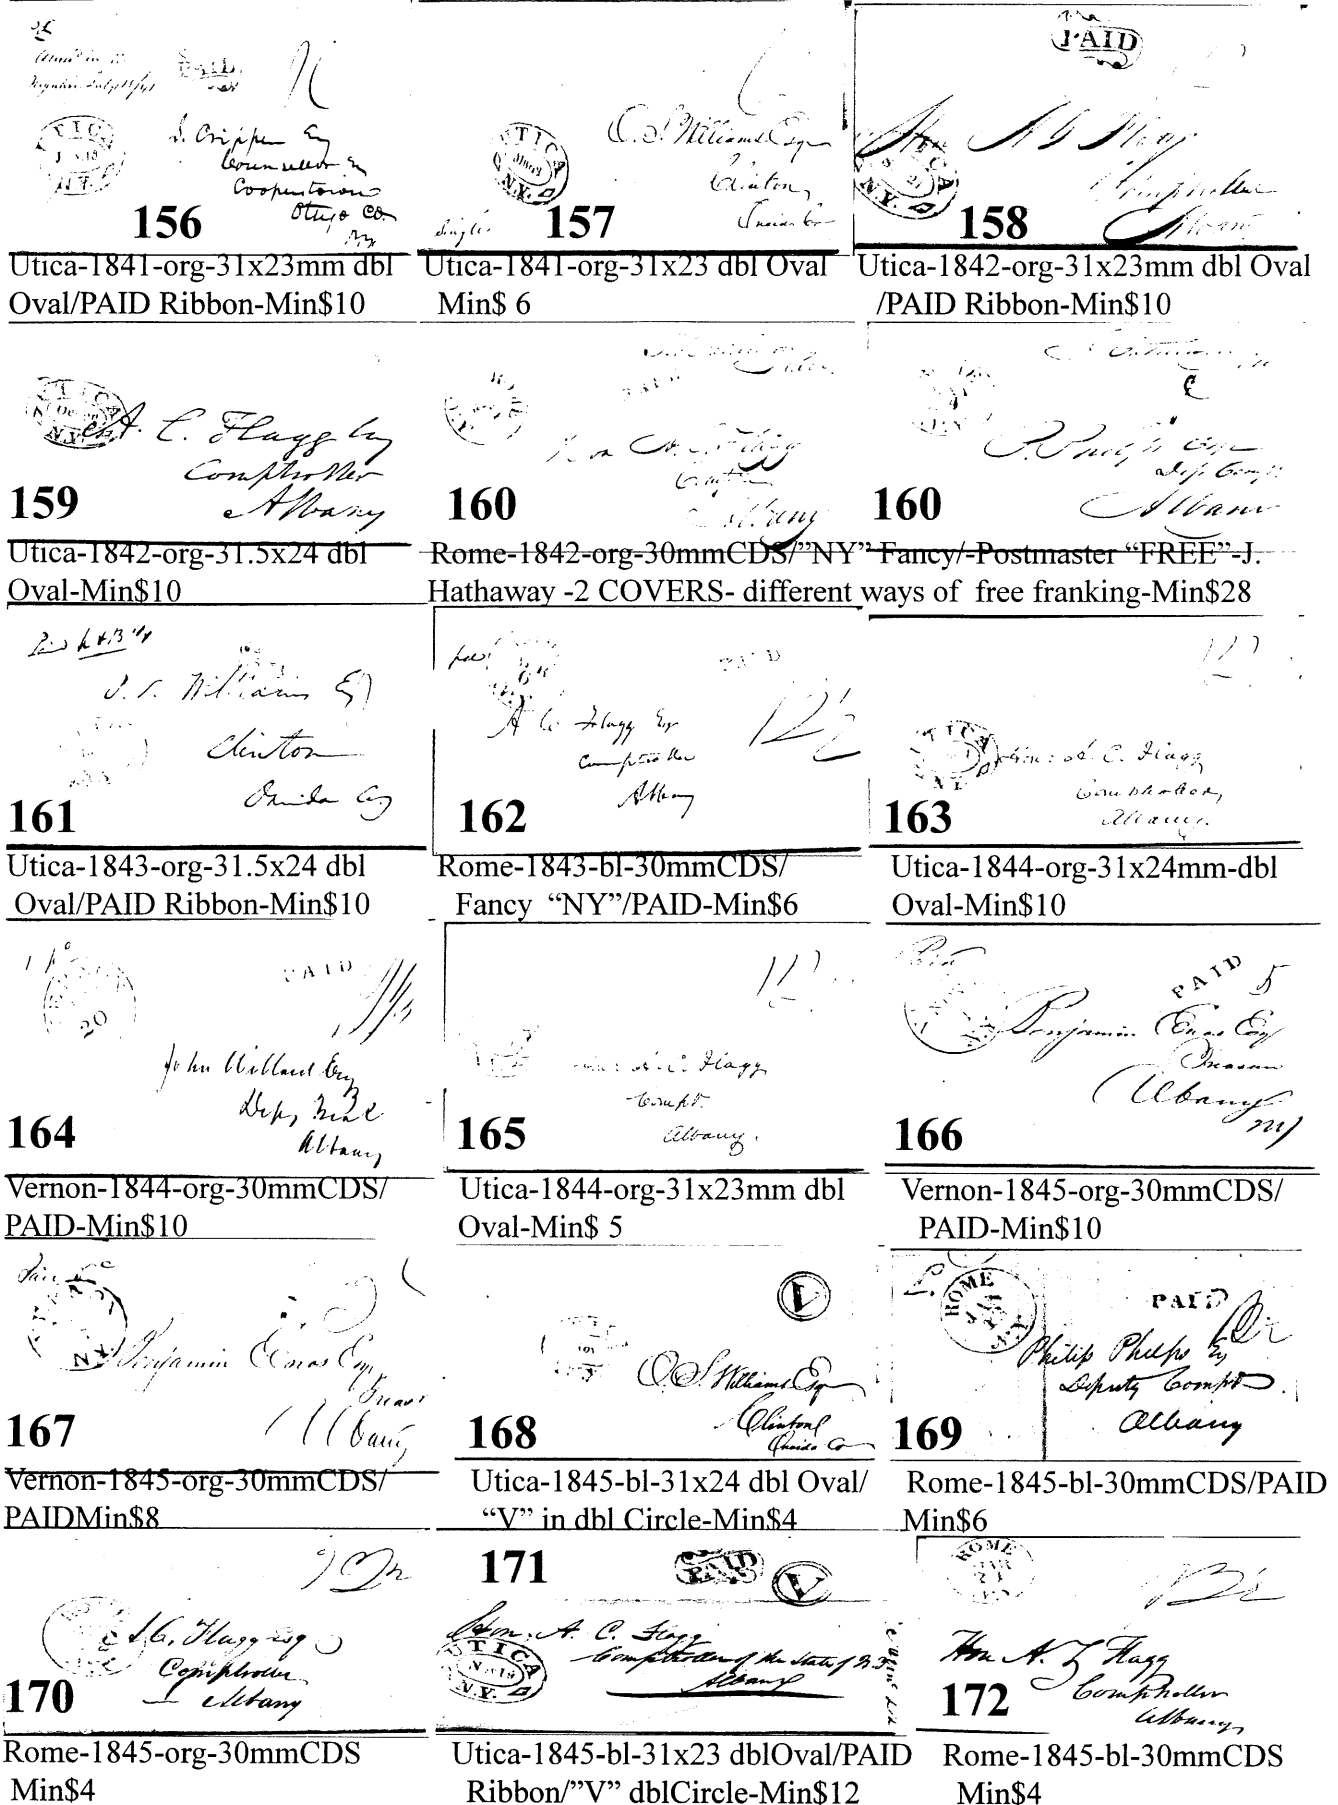 PAID
UTICA
N.Y.
J. Crippen Esq
Counsellor
Cooperstown
Otsego Co.
NY
156
Utica-1841-org-31x23mm dbl
Oval/PAID Ribbon-Min$10
UTICA
N.Y.
O. S. Williams Esq
Clinton,
Oneida Co
Single
157
Utica-1841-org-31x23 dbl Oval
Min$ 6
PAID
Hon A C Flagg
Comptroller
N.Y.
158
Utica-1842-org-31x23mm dbl Oval
/PAID Ribbon-Min$10
UTICA
N.Y.
A. C. Flagg Esq
Comptroller
Albany
159
Utica-1842-org-31.5x24 dbl
Oval-Min$10
PAID
Hon A. C. Flagg
Albany
160
Albany
160
Rome-1842-org-30mmCDS/”NY” Fancy/-Postmaster “FREE”-J.
Hathaway -2 COVERS- different ways of  free franking-Min$28
O. S. Williams Esq
Clinton
Oneida Co
161
Utica-1843-org-31.5x24 dbl
Oval/PAID Ribbon-Min$10
PAID
12½
A C Flagg Esq
Comptroller
Albany
162
Rome-1843-bl-30mmCDS/
Fancy  “NY”/PAID-Min$6
UTICA
Hon: A. C. Flagg
Comptroller,
Albany.
163
Utica-1844-org-31x24mm-dbl
Oval-Min$10
PAID
20
John Willard Esq
Albany
164
Vernon-1844-org-30mmCDS/
PAID-Min$10
A. C. Flagg
Compt.
Albany.
165
Utica-1844-org-31x23mm dbl
Oval-Min$ 5
Paid
PAID 5
Benjamin Enos Esq
Albany
NY
166
Vernon-1845-org-30mmCDS/
PAID-Min$10
NY
Benjamin Enos Esq
Albany
167
Vernon-1845-org-30mmCDS/
PAIDMin$8
V
O. S. Williams Esq
Clinton
Oneida Co
168
Utica-1845-bl-31x24 dbl Oval/
“V” in dbl Circle-Min$4
ROME
N.Y.
PAID
Philip Phelps Esq
Deputy Compt
Albany
169
Rome-1845-bl-30mmCDS/PAID
Min$6
A. C. Flagg esq
Comptroller
Albany
170
Rome-1845-org-30mmCDS
Min$4
171
PAID
V
Hon. A. C. Flagg
Comptroller of the State of N.Y.
Albany
UTICA
Nov 18
N.Y.
Utica-1845-bl-31x23 dblOval/PAID
Ribbon/”V” dblCircle-Min$12
ROME
Hon A. C. Flagg
Comptroller
Albany
172
Rome-1845-bl-30mmCDS
Min$4